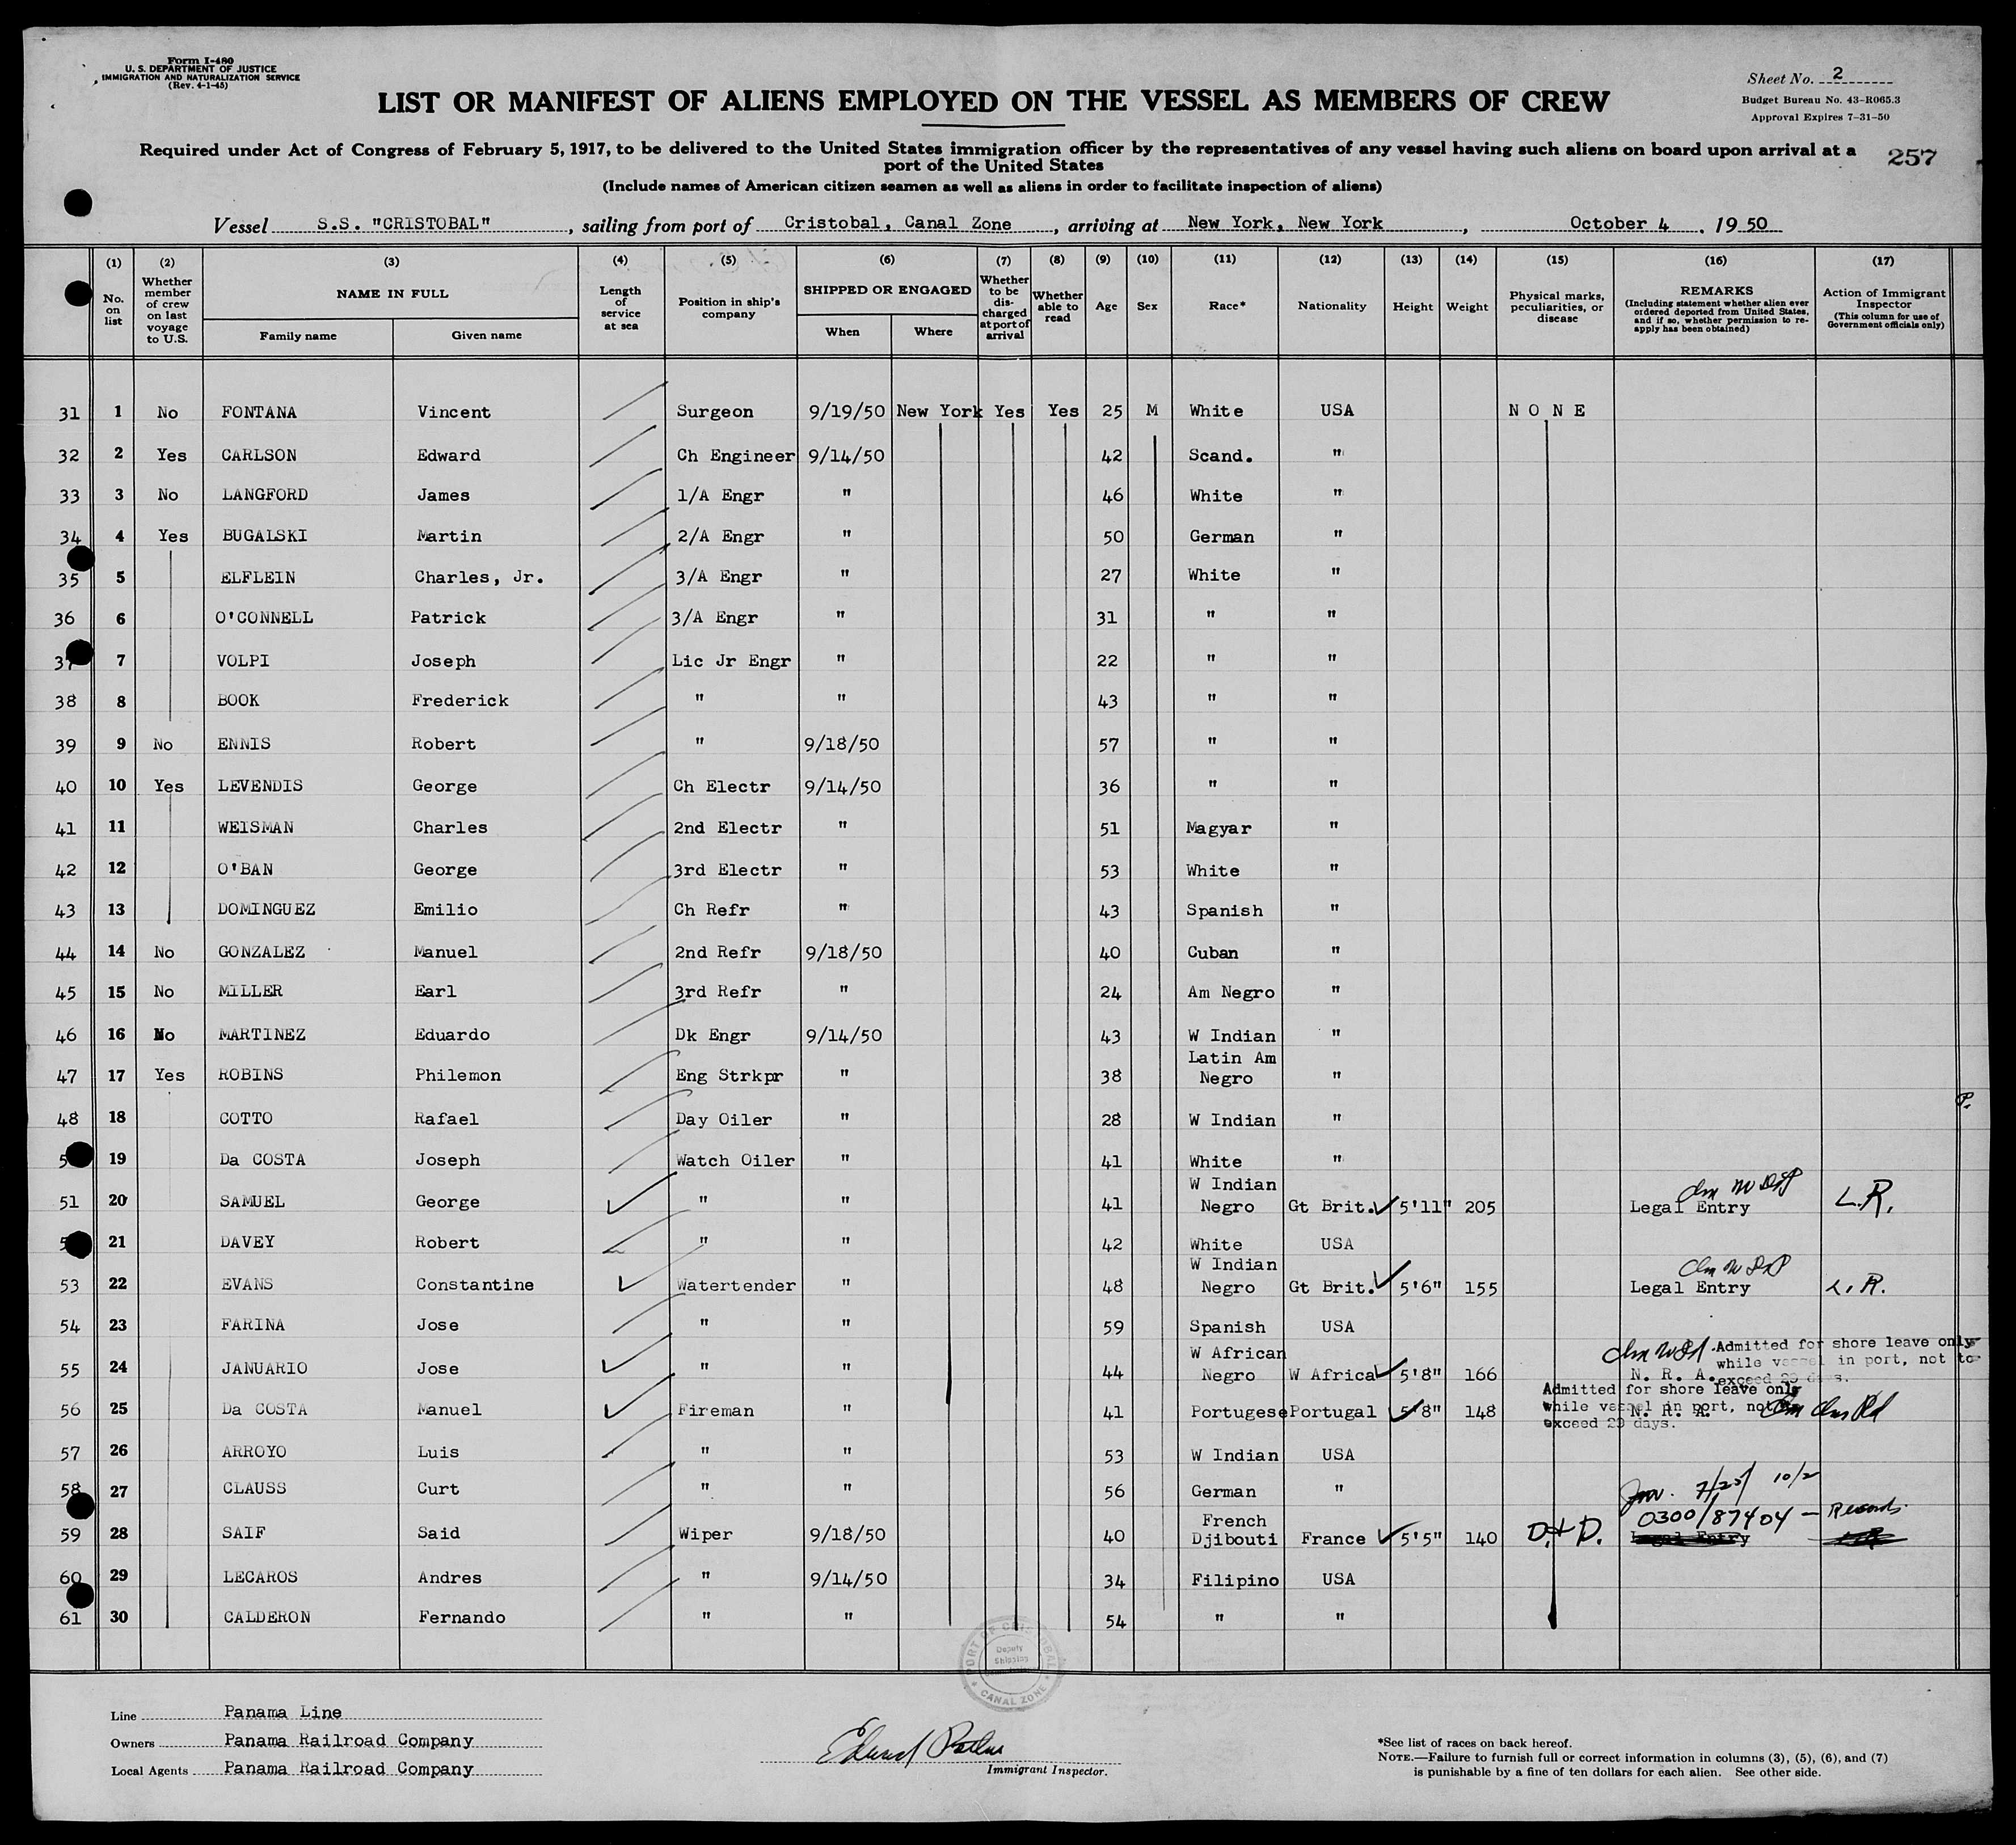 Form I-480
U. S. DEPARTMENT OF JUSTICE
IMMIGRATION AND NATURALIZATION SERVICE
(Rev. 4-1-45)
Sheet No. 2
Budget Bureau No. 43-R065.3
Approval Expires 7-31-50
LIST OR MANIFEST OF ALIENS EMPLOYED ON THE VESSEL AS MEMBERS OF CREW
Required under Act of Congress of February 5, 1917, to be delivered to the United States immigration officer by the representatives of any vessel having such aliens on board upon arrival at a
port of the United States
257
(Include names of American citizen seamen as well as aliens in order to facilitate inspection of aliens)
Vessel S.S. "CRISTOBAL", sailing from port of Cristobal, Canal Zone, arriving at New York, New York, October 4, 1950
(1) No. on list
(2) Whether member of crew on last voyage to U.S.
(3) NAME IN FULL Family name Given name
(4) Length of service at sea
(5) Position in ship's company
(6) SHIPPED OR ENGAGED When Where
(7) Whether to be discharged at port of arrival
(8) Whether able to read
(9) Age
(10) Sex
(11) Race*
(12) Nationality
(13) Height
(14) Weight
(15) Physical marks, peculiarities, or disease
(16) REMARKS (Including statement whether alien ever ordered deported from United States, and if so, whether permission to re-apply has been obtained)
(17) Action of Immigrant Inspector (This column for use of Government officials only)
31 1 No FONTANA Vincent Surgeon 9/19/50 New York Yes Yes 25 M White USA N O N E
32 2 Yes CARLSON Edward Ch Engineer 9/14/50 42 Scand. "
33 3 No LANGFORD James 1/A Engr " 46 White "
34 4 Yes BUGALSKI Martin 2/A Engr " 50 German "
35 5 ELFLEIN Charles, Jr. 3/A Engr " 27 White "
36 6 O'CONNELL Patrick 3/A Engr " 31 " "
37 7 VOLPI Joseph Lic Jr Engr " 22 " "
38 8 BOOK Frederick " " 43 " "
39 9 No ENNIS Robert " 9/18/50 57 " "
40 10 Yes LEVENDIS George Ch Electr 9/14/50 36 " "
41 11 WEISMAN Charles 2nd Electr " 51 Magyar "
42 12 O'BAN George 3rd Electr " 53 White "
43 13 DOMINGUEZ Emilio Ch Refr " 43 Spanish "
44 14 No GONZALEZ Manuel 2nd Refr 9/18/50 40 Cuban "
45 15 No MILLER Earl 3rd Refr " 24 Am Negro "
46 16 No MARTINEZ Eduardo Dk Engr 9/14/50 43 W Indian "
47 17 Yes ROBINS Philemon Eng Strkpr " 38 Latin Am Negro "
48 18 COTTO Rafael Day Oiler " 28 W Indian "
P.
19 Da COSTA Joseph Watch Oiler " 41 White "
51 20 SAMUEL George " " 41 W Indian Negro Gt Brit. 5'11" 205 Legal Entry L.R.
21 DAVEY Robert " " 42 White USA
53 22 EVANS Constantine Watertender " 48 W Indian Negro Gt Brit. 5'6" 155 Legal Entry L.R.
54 23 FARINA Jose " " 59 Spanish USA
55 24 JANUARIO Jose " " 44 W African Negro W Africa 5'8" 166 N. R. A. Admitted for shore leave only while vessel in port, not to exceed 29 days.
56 25 Da COSTA Manuel Fireman " 41 Portugese Portugal 5'8" 148 N. R. A. Admitted for shore leave only while vessel in port, not to exceed 29 days.
57 26 ARROYO Luis " " 53 W Indian USA
58 27 CLAUSS Curt " " 56 German "
7/25/ 10/2
59 28 SAIF Said Wiper 9/18/50 40 French Djibouti France 5'5" 140 D.+D. 0300/87404 - Records Legal Entry
60 29 LECAROS Andres " 9/14/50 34 Filipino USA
61 30 CALDERON Fernando " " 54 " "
PORT OF CRISTOBAL
Deputy
Shipping
CANAL ZONE
Line Panama Line
Owners Panama Railroad Company
Local Agents Panama Railroad Company
Immigrant Inspector.
*See list of races on back hereof.
NOTE.—Failure to furnish full or correct information in columns (3), (5), (6), and (7)
is punishable by a fine of ten dollars for each alien. See other side.